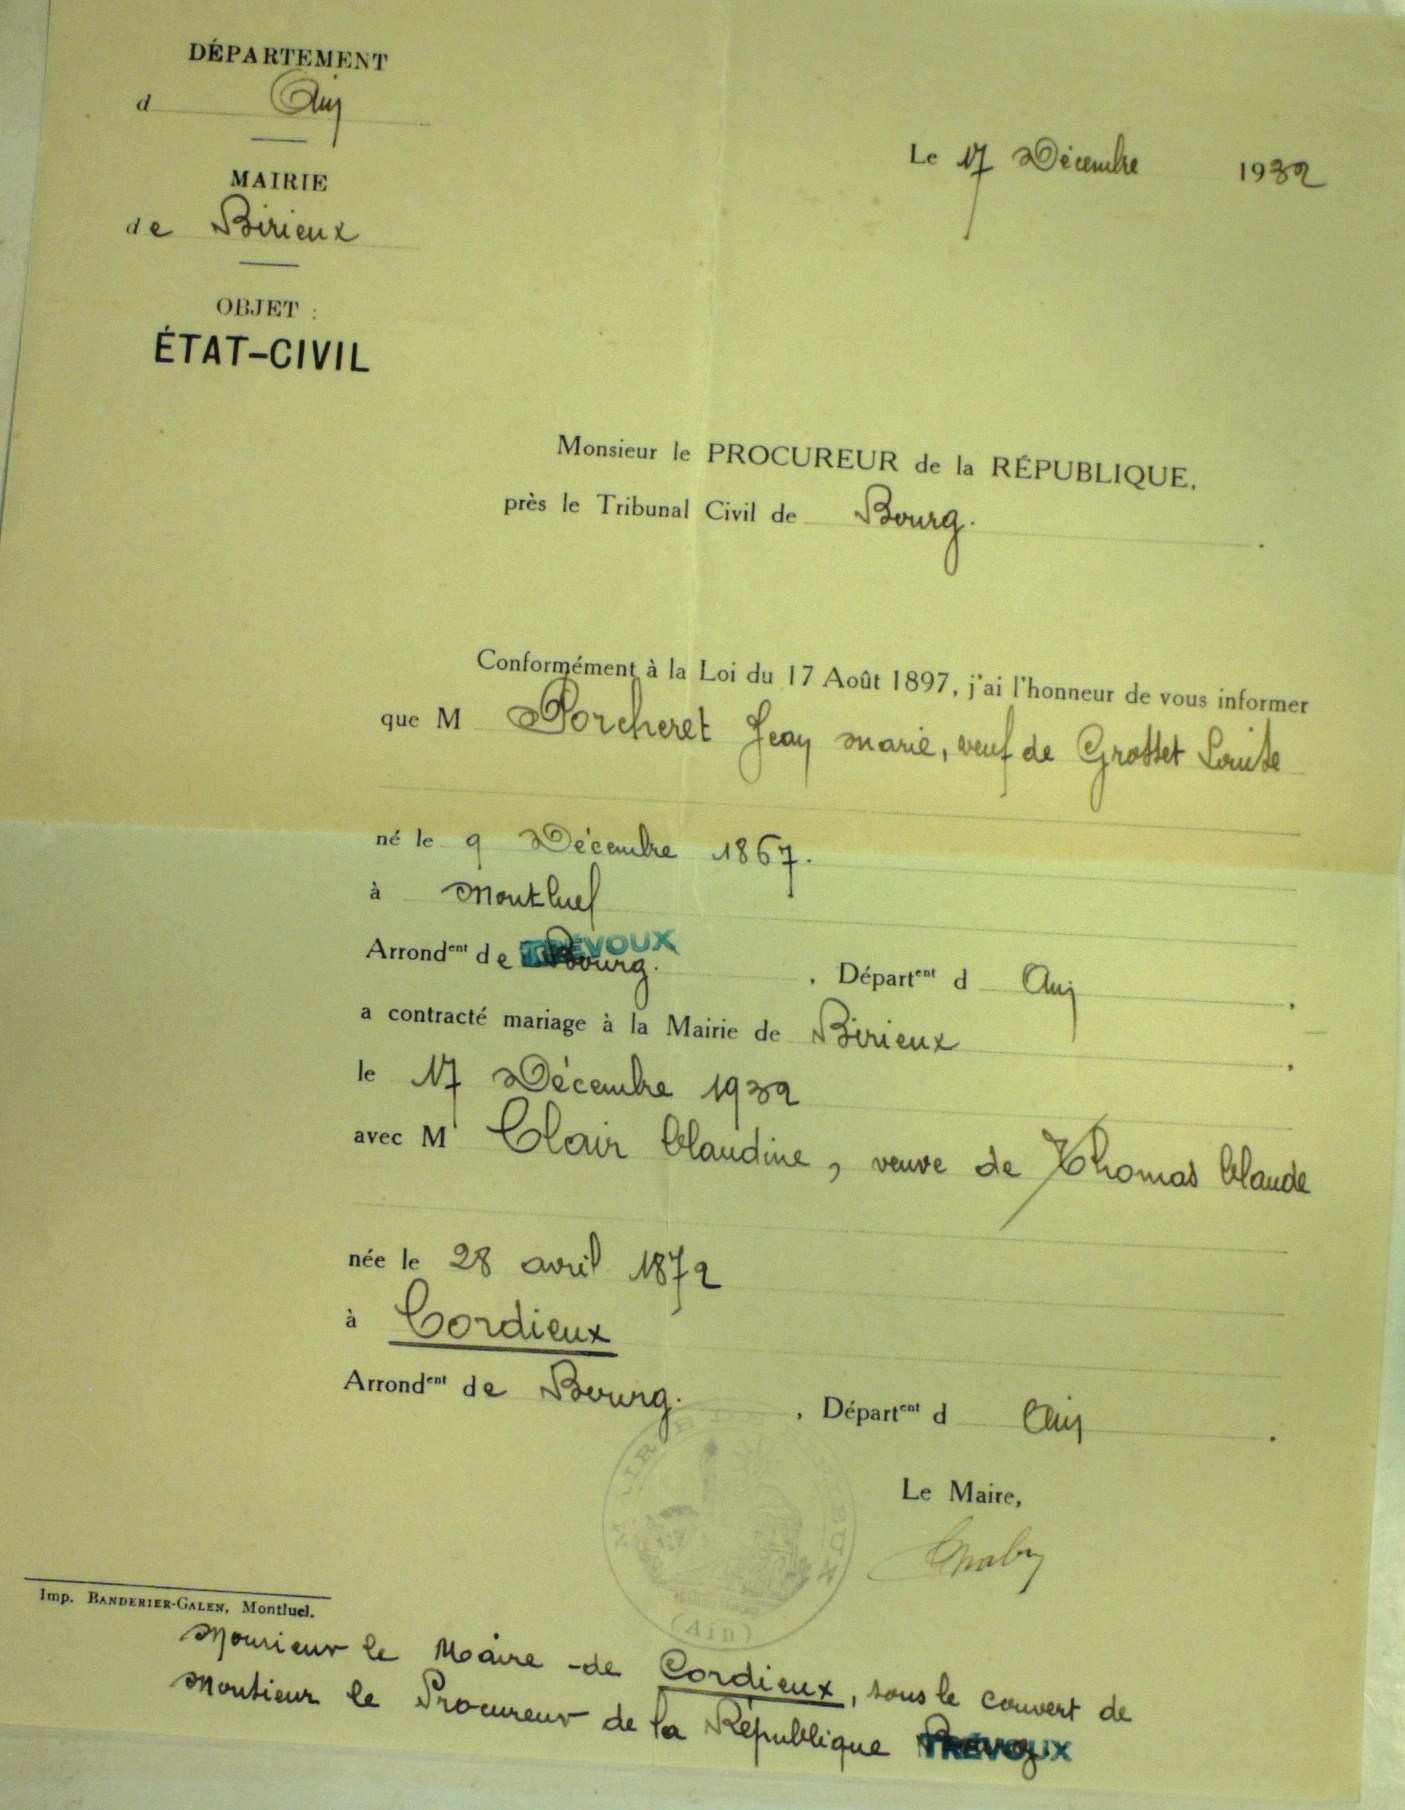 DÉPARTEMENT
d Ain
MAIRIE
de Birieux
OBJET :
ÉTAT-CIVIL
Le 17 Décembre 1932
Monsieur le PROCUREUR de la RÉPUBLIQUE,
près le Tribunal Civil de Bourg.
Conformément à la Loi du 17 Août 1897, j'ai l'honneur de vous informer
que M Porcheret Jean Marie, veuf de Grosset Louise
né le 9 Décembre 1867.
à Montluel
Arrondent de TRÉVOUX Bourg. , Départent d Ain .
a contracté mariage à la Mairie de Birieux .
le 17 Décembre 1932
avec M Clair Claudine, veuve de Thomas Claude
née le 28 avril 1872
à Cordieux
Arrondent de Bourg. , Départent d Ain .
MAIRIE DE BIRIEUX
(Ain)
Le Maire,
Imp. BANDERIER-GALEN, Montluel.
Monsieur le Maire de Cordieux, sous le couvert de
Monsieur le Procureur de la République Bourg TRÉVOUX